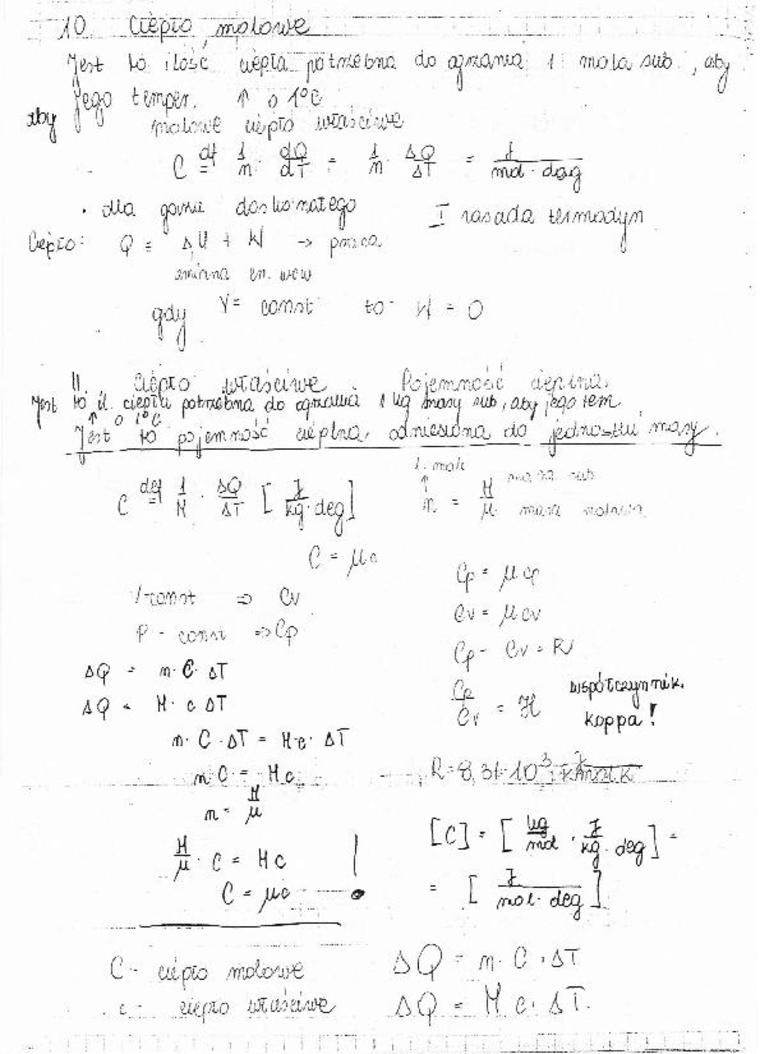 10. Ciepło molowe
Jest to ilość ciepła potrzebna do ogrzania 1 mola sub., aby
jego temper. ↑ o 1°C
aby
molowe ciepło właściwe
C =df 1/n · dQ/dT = 1/n · ΔQ/ΔT = J/mol · deg
• dla gazu doskonałego I zasada termodyn
Ciepło: Q = ΔU + W → praca
zmiana en. wew
gdy V = const to W = 0
11. Ciepło właściwe Pojemność cieplna.
Jest to il. ciepła potrzebna do ogrzania 1 kg masy sub, aby jego tem
↑ o 1°C
Jest to pojemność cieplna odniesiona do jednostki masy.
C =def 1/M · ΔQ/ΔT [J/kg·deg]
l. moli ↑ n = M/μ masa sub masa molowa
C = μc
V-const ⇒ Cv
P - const ⇒ Cp
ΔQ = n · C · ΔT
ΔQ = M · c ΔT
n · C · ΔT = M · c · ΔT
n C = M c
n = M/μ
M/μ · C = M c !
C = μc
Cp = μ cp
Cv = μ cv
Cp - Cv = R
Cp/Cv = ϰ współczynnik
kappa!
R = 8,31·10³ J/kmol·K
[C] = [kg/mol · J/kg · deg] =
= [J/mol · deg]
C - ciepło molowe
c - ciepło właściwe
ΔQ = n · C · ΔT
ΔQ = M c · ΔT.